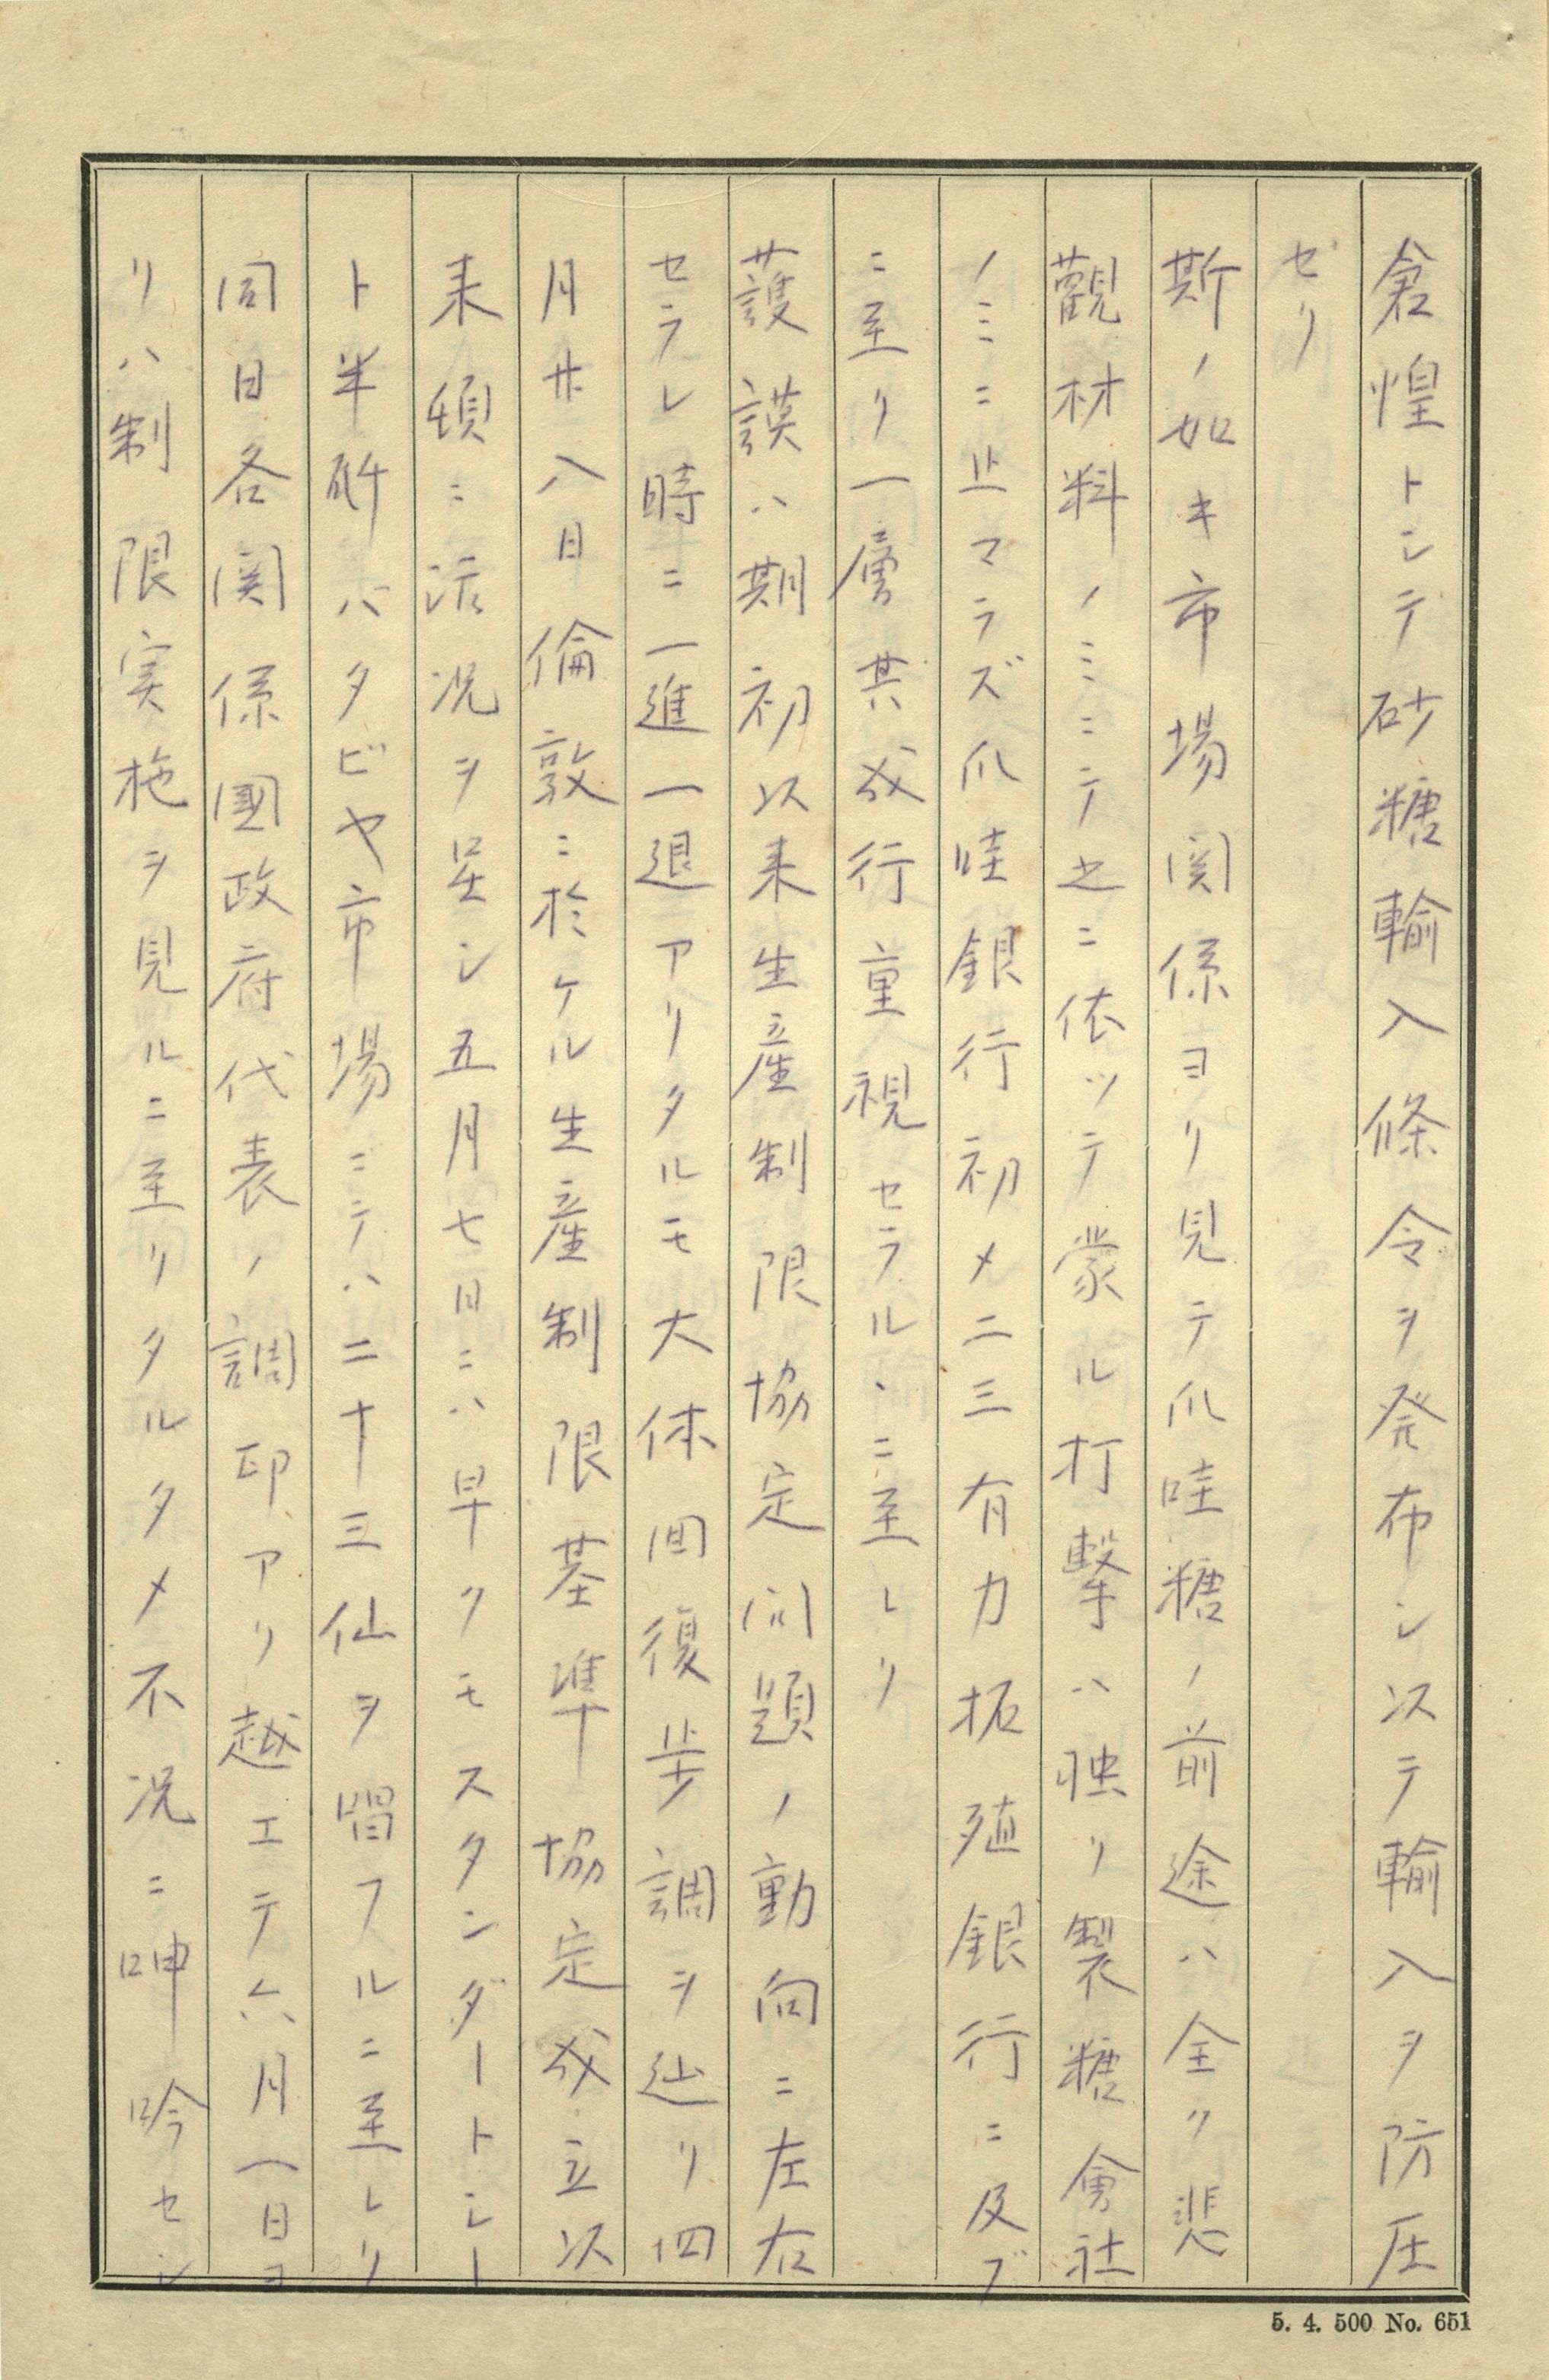 倉惶トシテ砂糖輸入條令ヲ発布シ以テ輸入ヲ防圧
セリ
斯ノ如キ市場関係ヨリ見テ爪哇糖ノ前途ハ全ク悲
觀材料ノミニテ之ニ依ッテ蒙ル打撃ハ独リ製糖會社
ノミニ止マラズ爪哇銀行初メ二三有力拓殖銀行ニ及ブ
ニ至リ一層其成行重視セラルヽニ至レリ
護謨ハ期初以来生産制限協定問題ノ動向ニ左右
セラレ時ニ一進一退アリタルモ大体回復歩調ヲ辿リ四
月廿八日倫敦ニ於ケル生産制限基準協定成立以
来頓ニ活況ヲ呈シ五月七日ニハ早クモスタンダードシー
ト半听バタビヤ市場ニテハ二十三仙ヲ唱フルニ至レリ
同日各関係國政府代表ノ調印アリ越エテ六月一日ヨ
リハ制限実施ヲ見ルニ至リタルタメ不況ニ呻吟セシ
5. 4. 500 No. 651